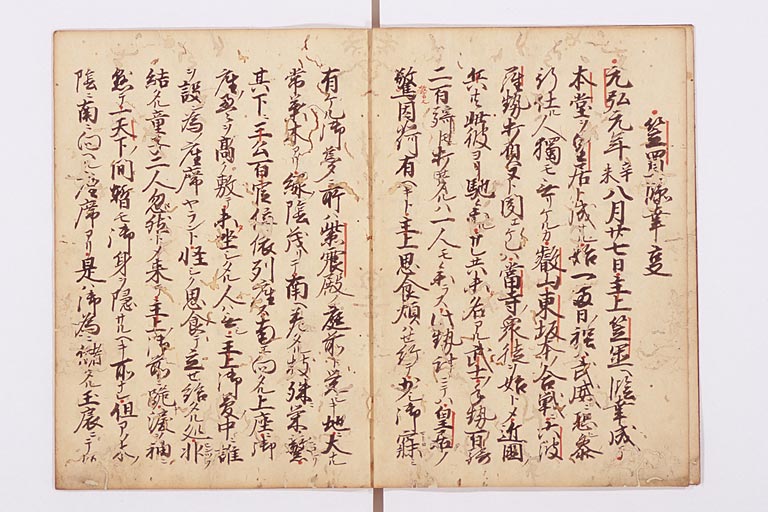 笠置臨幸事
元弘元年辛未八月廿七日主上笠置ヘ臨幸成テ
本堂ヲ皇居ト成ル始一両日ハ程ハ武威ニ恐テ参
リ仕ル人獨モ無リケルカ叡山東坂本ノ合戦ニ六波
羅勢打負ヌト聞ヘケレハ當寺衆徒ヲ始トメ近國
兵共此彼ヨリ馳参ル サレ共未名アル武士手勢百騎
二百騎トモ打セタル人一人モ不参此勢計ニテハ皇居ノ
警固如何有ヘキト主上思食煩ハセ給テ少シ御寐
有ケル御夢ニ所ハ紫宸殿ノ庭前ト覚ヘキ地ニ大ナル
常葉木アリ緑陰茂リテ南ヘ差タル枝殊栄繁
其下ニ三公百官位ニ依列座ス南ニ向タル上座ニ御
座畳ヲ高ク敷テ未坐シタル人ハ無主上御夢中ニ誰
ヲ設ン為座席ヤラント怪シク思食テ立セ給タル処ニ
結タル童子二人忽然トメ来テ主上ノ御前ニ跪涙ヲ袖ニ
然テ一天下ノ間ニ暫モ御身ヲ隠サルヘキ所ナシ但アノ木ノ
陰ニ南ニ向ヘル座席アリ是ハ御為ニ設タル玉扆ニテ